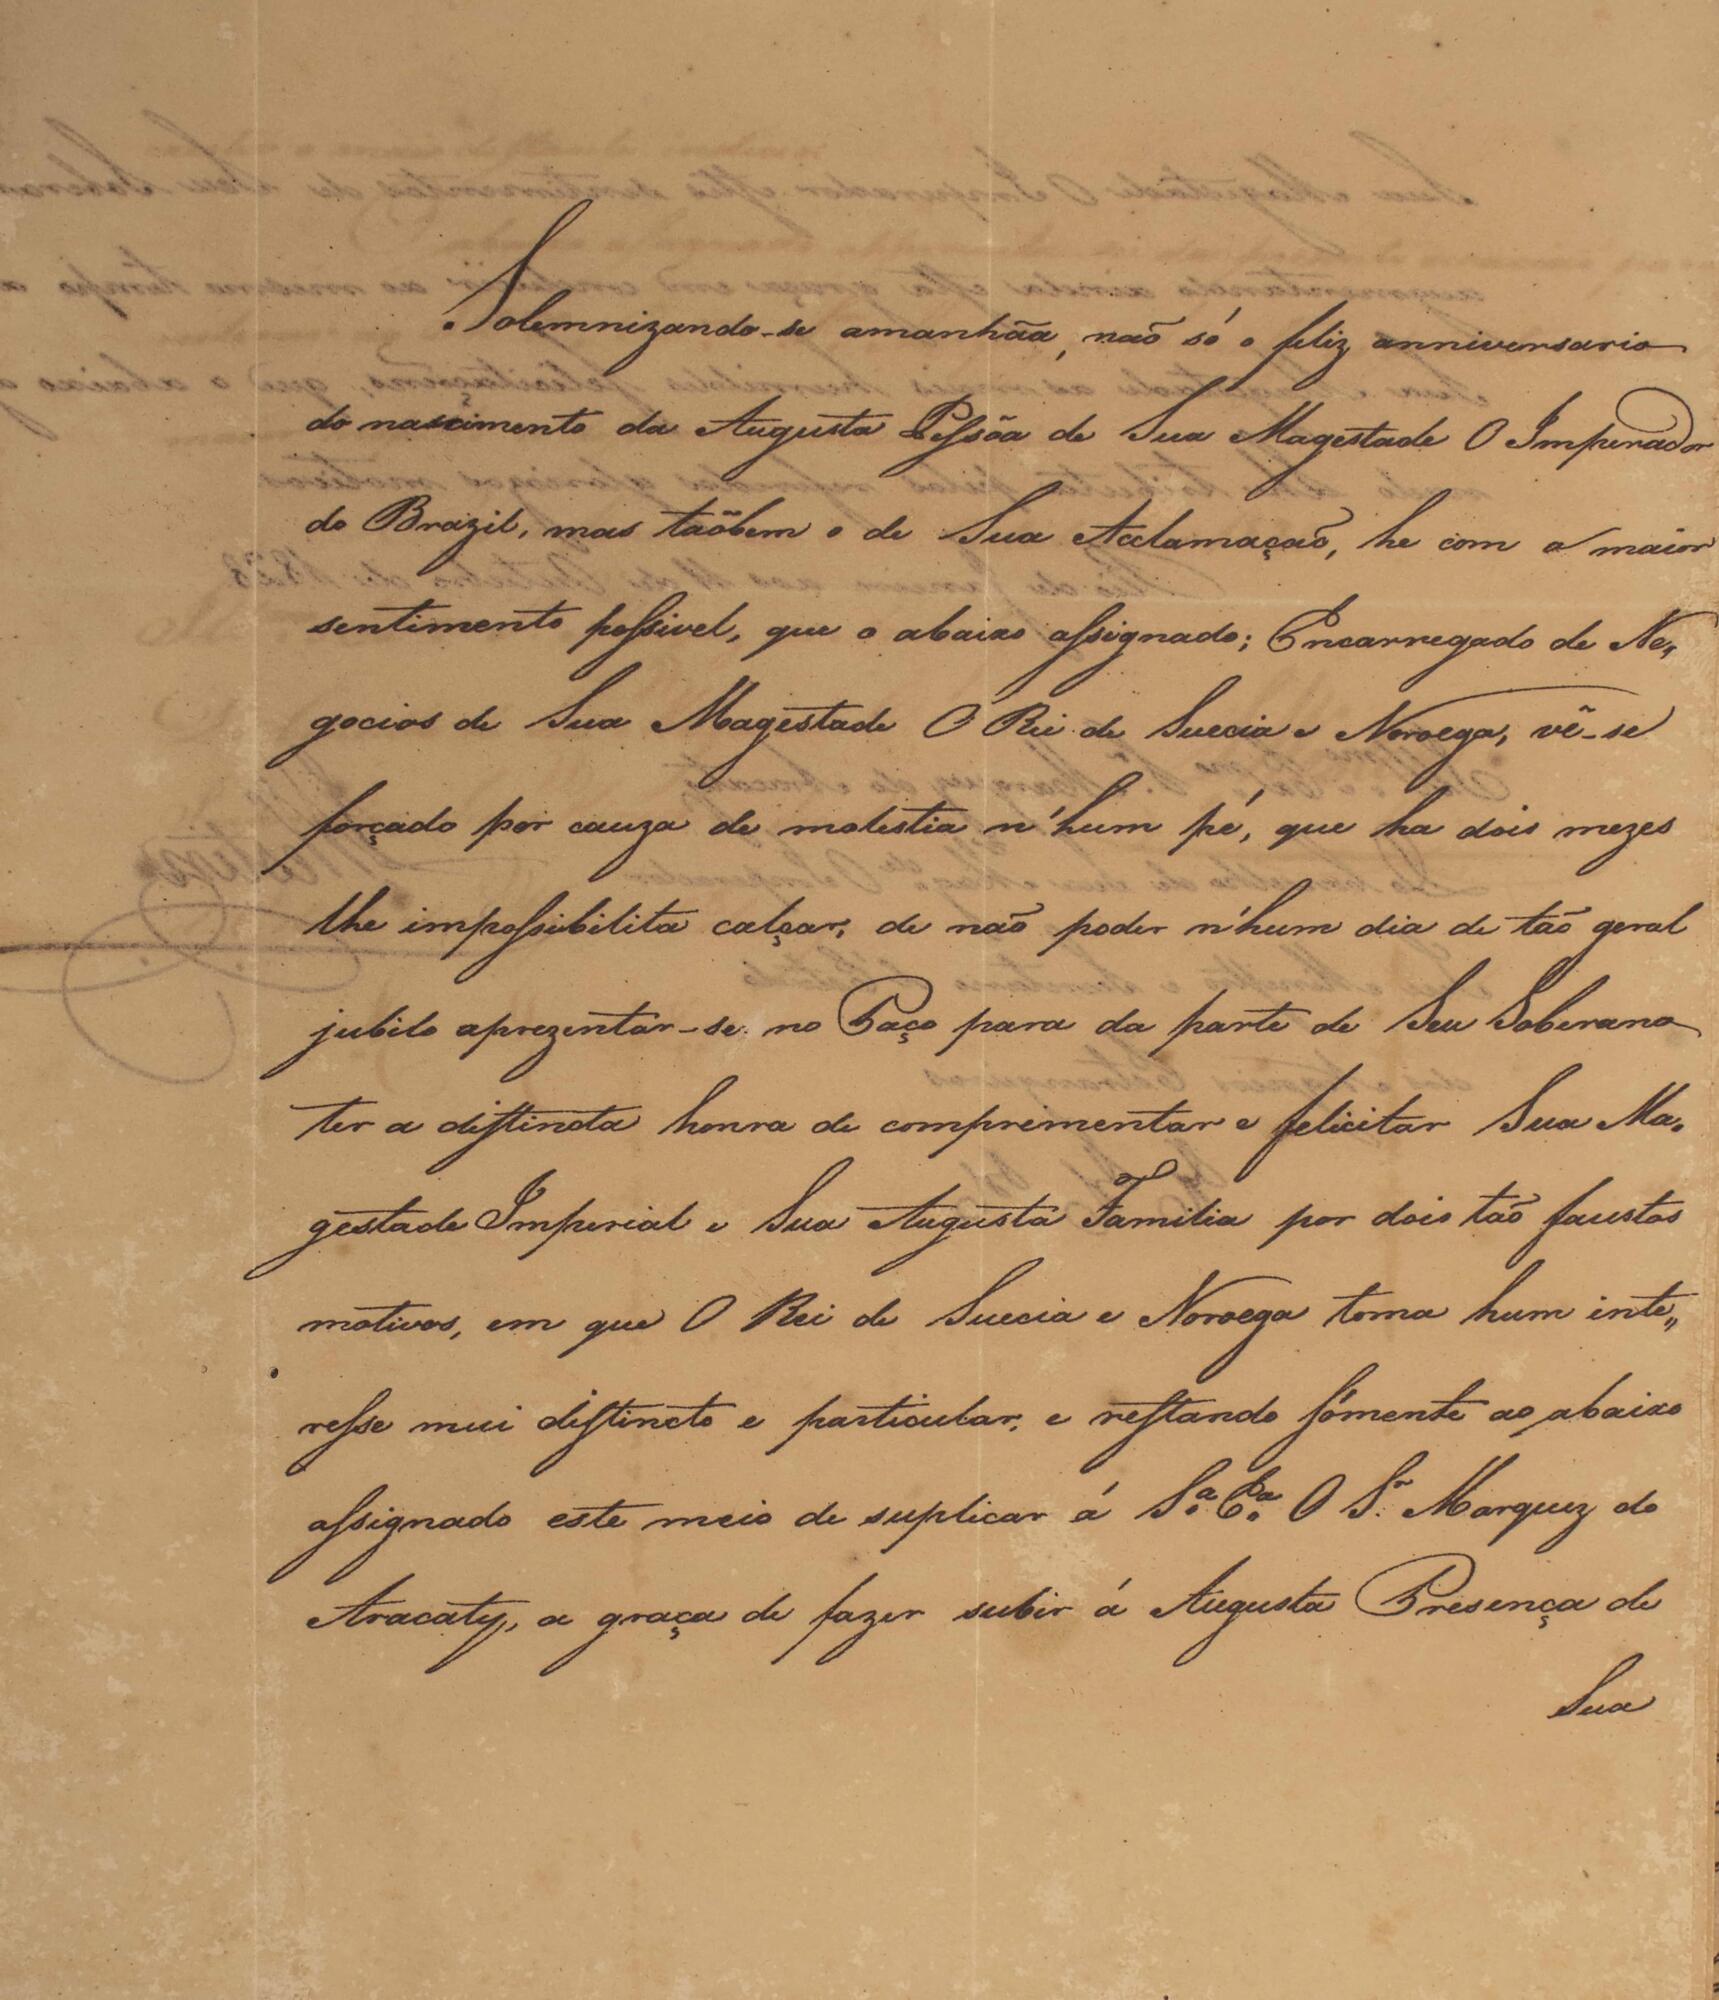 Solemnizando-se amanhãa, naõ só o feliz anniversario
do nascimento da Augusta Pessôa de Sua Magestade O Imperador
do Brazil, mas taõbem o de Sua Acclamaçaõ, he com o maior
sentimento possivel, que o abaixo assignado; Encarregado de Ne„
gocios de Sua Magestade O Rei de Suecia e Noroega, vê-se
forçado por cauza de molestia n'hum pé, que ha dois mezes
lhe impossibilita calçar, de naõ poder n'hum dia de taõ geral
jubilo aprezentar-se no Paço para da parte de Seu Soberano
ter a distincta honra de comprimentar e felicitar Sua Ma„
gestade Imperial e Sua Augusta Familia por dois taõ faustos
motivos, em que O Rei de Suecia e Noroega toma hum inte„
resse mui distincto e particular, e restando sómente ao abaixo
assignado este meio de suplicar á S.ª E.ª O S.r Marquez do
Aracaty, a graça de fazer subir á Augusta Presença de
Sua